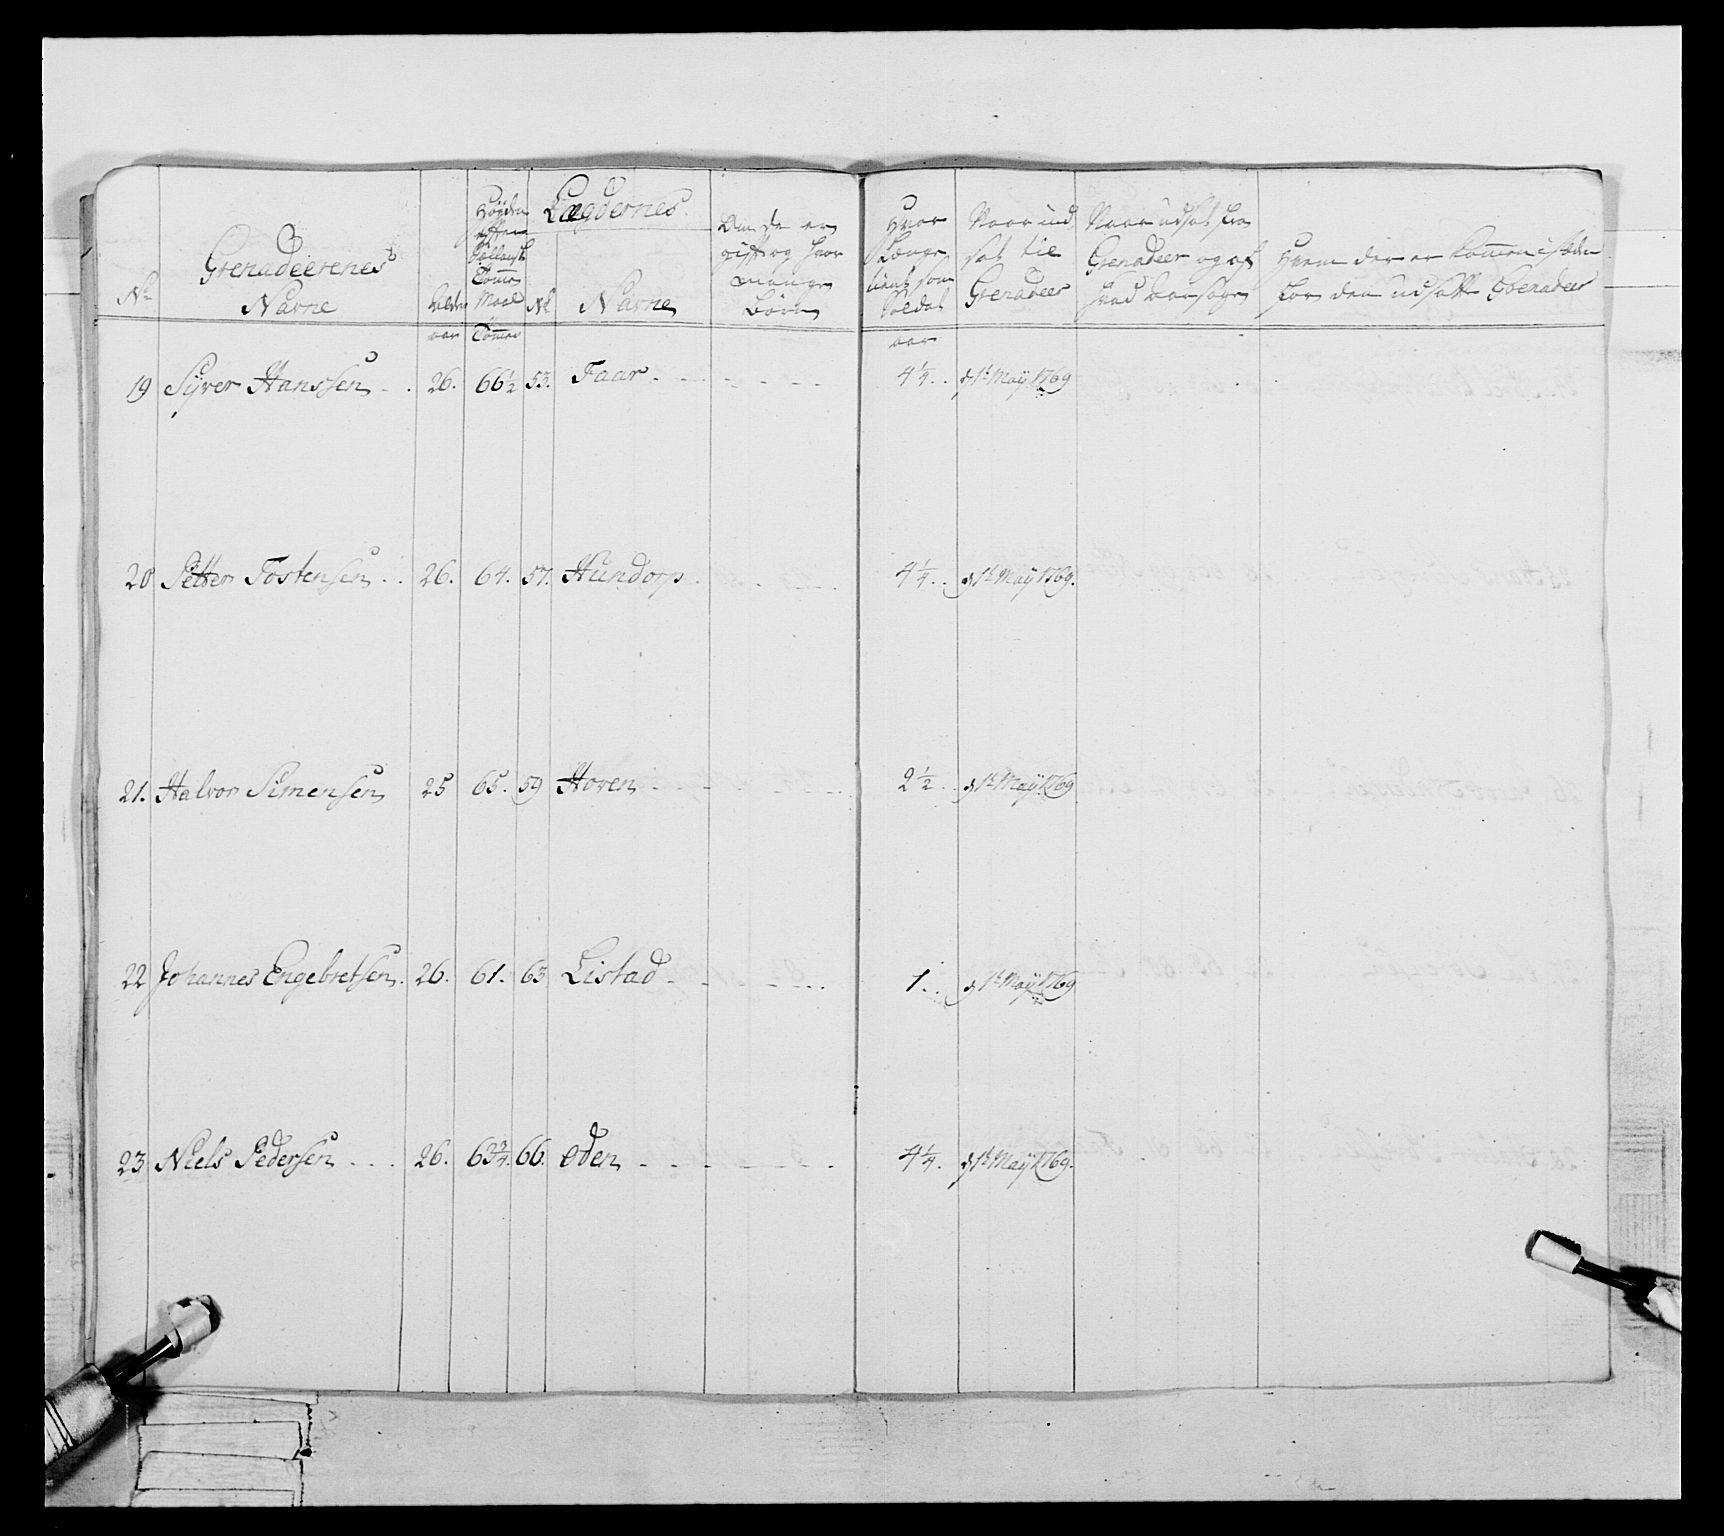 No
Grenadeerenes
Navne
Alder
aar
Høyden
efter
Hollansk
Tomme
Maal
Tommer
Lægdernes
No
Navne
Om de er
gift og hvor
mange
Børn
Hvor
Længe
tient som
Soldat
aar
Naar ind
sat til
Grenadeer
Naar udsat fra
Grenadeer og af
hvad Aarsage
Hvem der er kommen i stæden
for den udsatte Grenadeer
19 Syver Hanssen 26. 66½ 53. Faar 4¼ d 1t May 1769
20 Petter Tostensen 26. 64. 57. Hundorp 4¼ d 1t May 1769.
21. Halvor Simensen 25 65. 59 Hoven 2½ d 1t May 1769
22 Johannes Engebretsen. 26. 61. 63 Listad 1 d 1t May 1769
23 Niels Pedersen 26. 63¾. 66. Oden 4¼. d 1t May 1769.